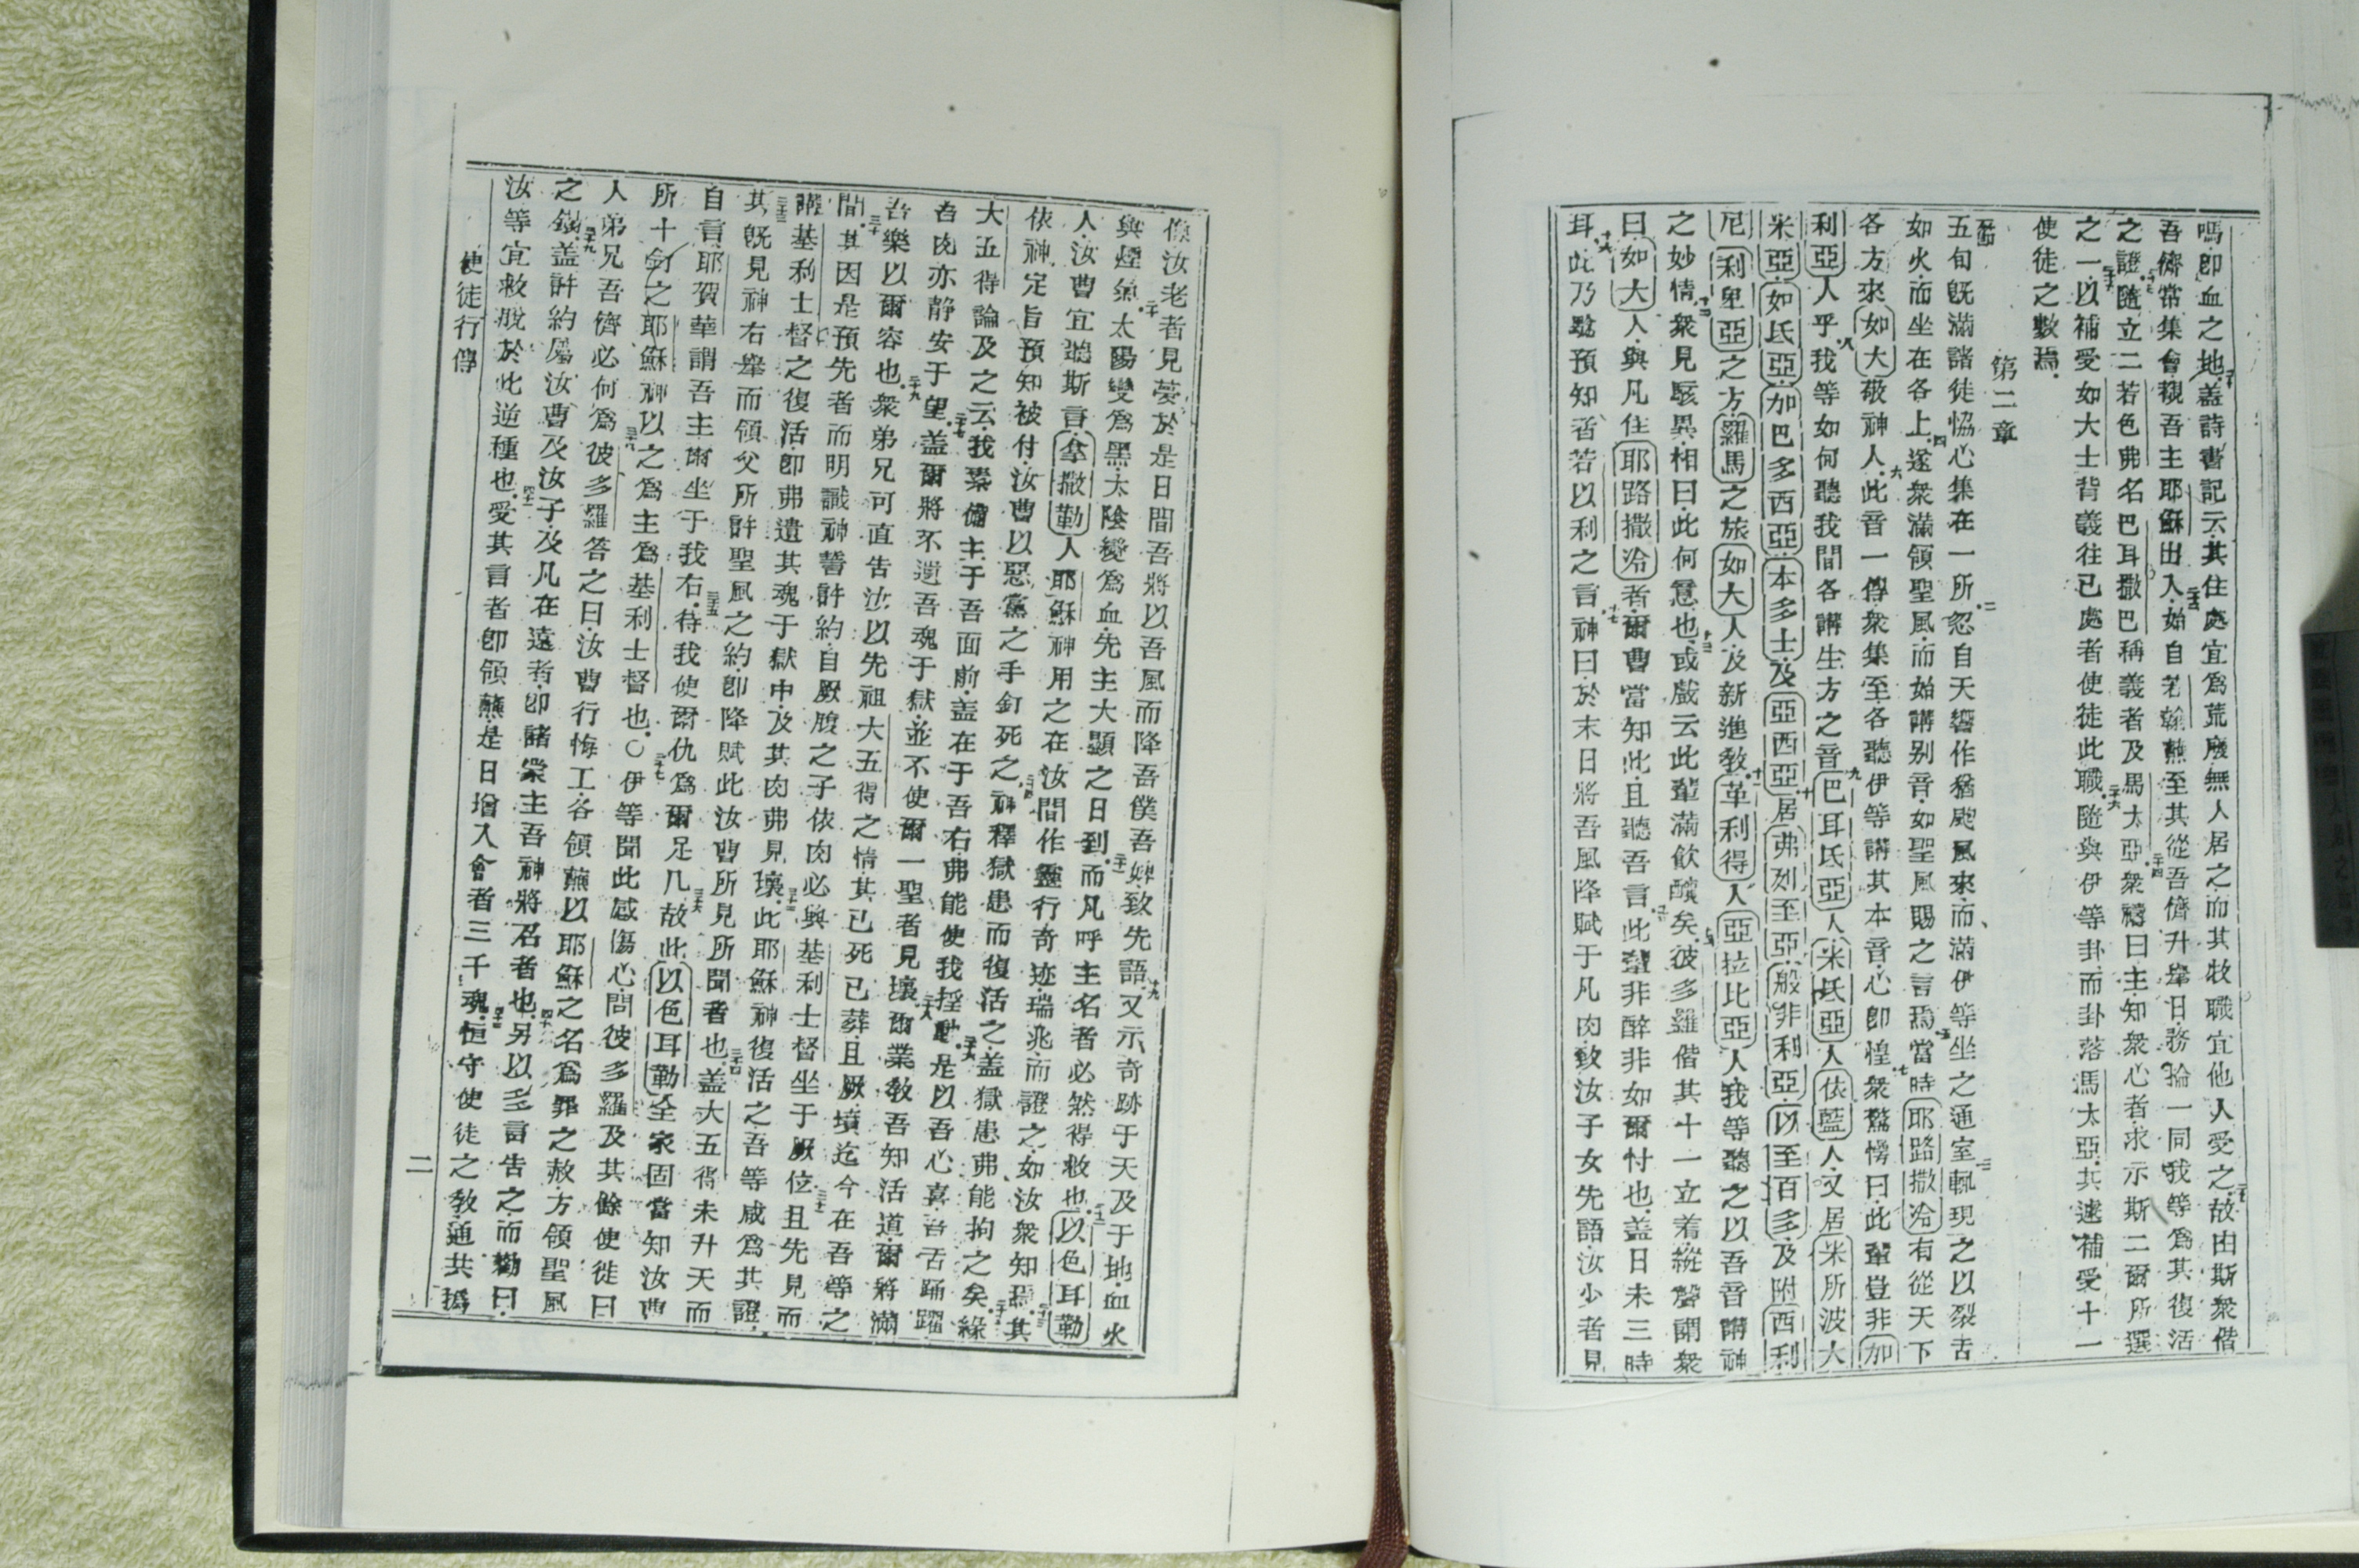 嗎卽血之地盖詩書記云其住處宜爲荒廢無人居之而其牧職宜他人受之故由斯衆偕
吾儕當集會穪吾主耶穌出入始自若翰蘸至其從吾儕升擧日務掄一同我等爲其復活
之證隨立二若色弗名巴耳撒巴稱義者及馬太亞衆禱曰主知衆心者求示斯二爾所選
之一以補受如大士背義往已處者使徒此職隨與伊等卦而卦落馮太亞其遂補受十一
使徒之數焉
第二章
五旬旣滿諸徒恊心集在一所忽自天響作猶颰風來而滿伊等坐之通室輒現之以裂舌
如火而坐在各上遂衆滿領聖風而始講别音如聖風賜之言焉當時耶路撒冾有從天下
各方來如大敬神人此音一傳衆集至各聽伊等講其本音心卽惶衆驚愕曰此輩豈非加
利亞人乎我等如何聽我間各講生方之音巴耳氐亞人米氐亞人依藍人又居米所波大
米亞如氐亞加巴多西亞本多士及亞西亞居弗列至亞般非利亞以至百多及附西利
尼利卑亞之方羅馬之旅如大人及新進敎革利得人亞拉比亞人我等聽之以吾音講神
之妙情衆見駭異相曰此何意也或戲云此輩滿飮醲矣彼多羅偕其十一立着縱聲謂衆
曰如大人與凡住耶路撒冾者爾曹當知此且聽吾言此輩非醉非如爾忖也盖日未三時
耳此乃騐預知者若以利之言神曰於末日將吾風降賦于凡肉致汝子女先語汝少者見
像汝老者見夢於是日間吾將以吾風而降吾僕吾婢致先語又示奇跡于天及于地血火
與煙氣太陽變爲黑太陰變爲血先主大顯之日到而凡呼主名者必然得救也以色耳勒
人汝曹宜聽斯言拿撒勒人耶穌神用之在汝間作靈行奇迹瑞兆而證之如汝衆知焉其
依神定旨預知被付汝曹以惡黨之手釘死之神釋獄患而復活之盖獄患弗能拘之矣緣
大五得論及之云我素偹主于吾面前盖在于吾右弗能使我揺動是以吾心喜吾舌踊躍
吾肉亦静安于望盖爾將不遺吾魂于獄並不使爾一聖者見壞爾業敎吾知活道爾將滿
吾樂以爾容也衆弟兄可直告汝以先祖大五得之情其已死已葬且厥墳迄今在吾等之
間其因是預先者而明識神誓許約自厥腹之子依肉必興基利士督坐于厥位且先見而
講基利士督之復活卽弗遺其魂于獄中及其肉弗見壞此耶穌神復活之吾等咸爲其證
其旣見神右擧而領父所許聖風之約卽降賦此汝曹所見所聞者也盖大五得未升天而
自言耶賀華謂吾主爾坐于我右待我使爾仇爲爾足几故此以色耳勒全家固當知汝曹
所十釘之耶穌神以之爲主爲基利士督也○伊等聞此感傷心問彼多羅及其餘使徒曰
人弟兄吾儕必何爲彼多羅答之曰汝曹行悔工各領蘸以耶穌之名爲罪之赦方領聖風
之錫盖許約屬汝曹及汝子及凡在遠者卽諸蒙主吾神將召者也另以多言告之而勸曰
汝等宜救脫於此逆種也受其言者卽領蘸是日增入會者三千魂恒守使徒之敎通共擘
使徒行傳
二